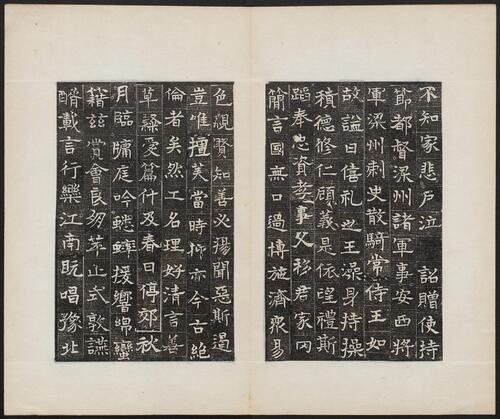 不知家悲戶泣　詔贈使持
節都督梁州諸軍事安西將
軍梁州刺史散騎常侍王如
故謚曰僖礼也王澡身持操
積德修仁顧義是依望禮斯
蹈奉忠資孝事父移君家內
簡言國無口過博施濟眾易
色親賢知善必揚聞惡斯遏
豈唯擅美當時抑亦今古絕
倫者矣然工名理好清言善
草隸愛篇什及春日停郊秋
月臨牖庭吟蟋蟀援響綿蠻
籍茲賞會良朋萃止式敦讌
醑載言行樂江南既唱豫北